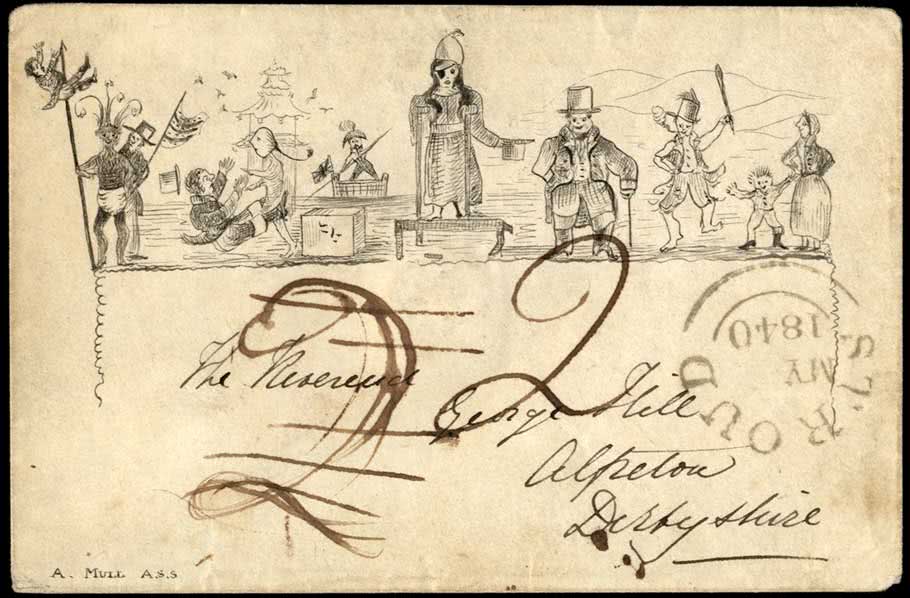 2
2
The Reverend
George Hill
Alfreton
Derbyshire
STROUD
MY
1840
A. MULL A.S.S